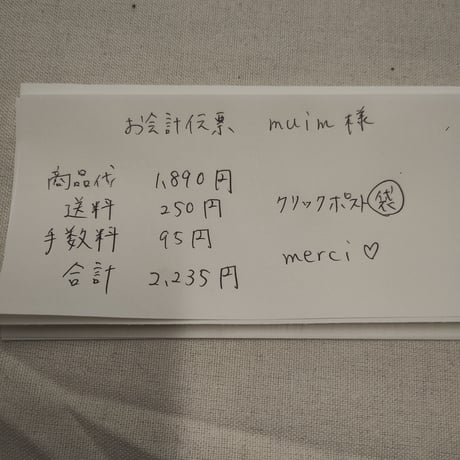 お会計伝票 muim様
商品代 1,890円
送料 250円
クリックポスト袋
手数料 95円
merci♡
合計 2,235円